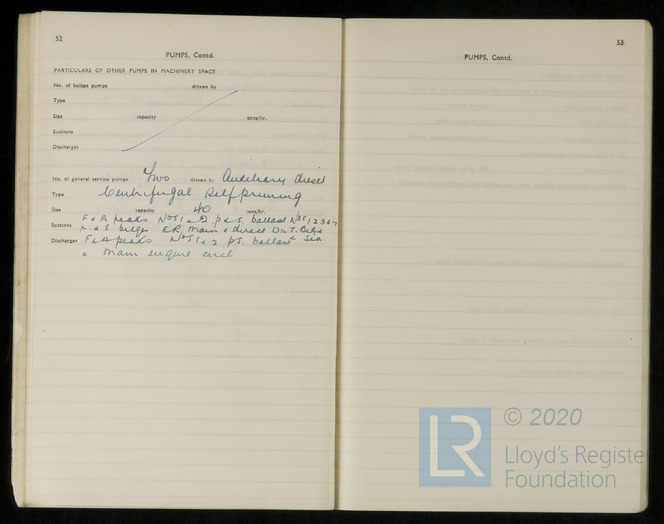 52
PUMPS, Contd.
PARTICULARS OF OTHER PUMPS IN MACHINERY SPACE
No. of ballast pumps driven by
Type
Size capacity tons/hr.
Suctions
Discharges
No. of general service pumps Two driven by Auxiliary diesel
Type Centrifugal Self priming
Size capacity 40 tons/hr.
Suctions F & A peaks Nos 1 & 2 p & s. ballast Nos 1 2 3 &
p. & s. bilge ER. main & direct Bilge
Discharges F & A peaks Nos 1 & 2 p.s. ballast Sea
" main engine circ.
53
PUMPS, Contd.
LR
© 2020
Lloyd's Register
Foundation